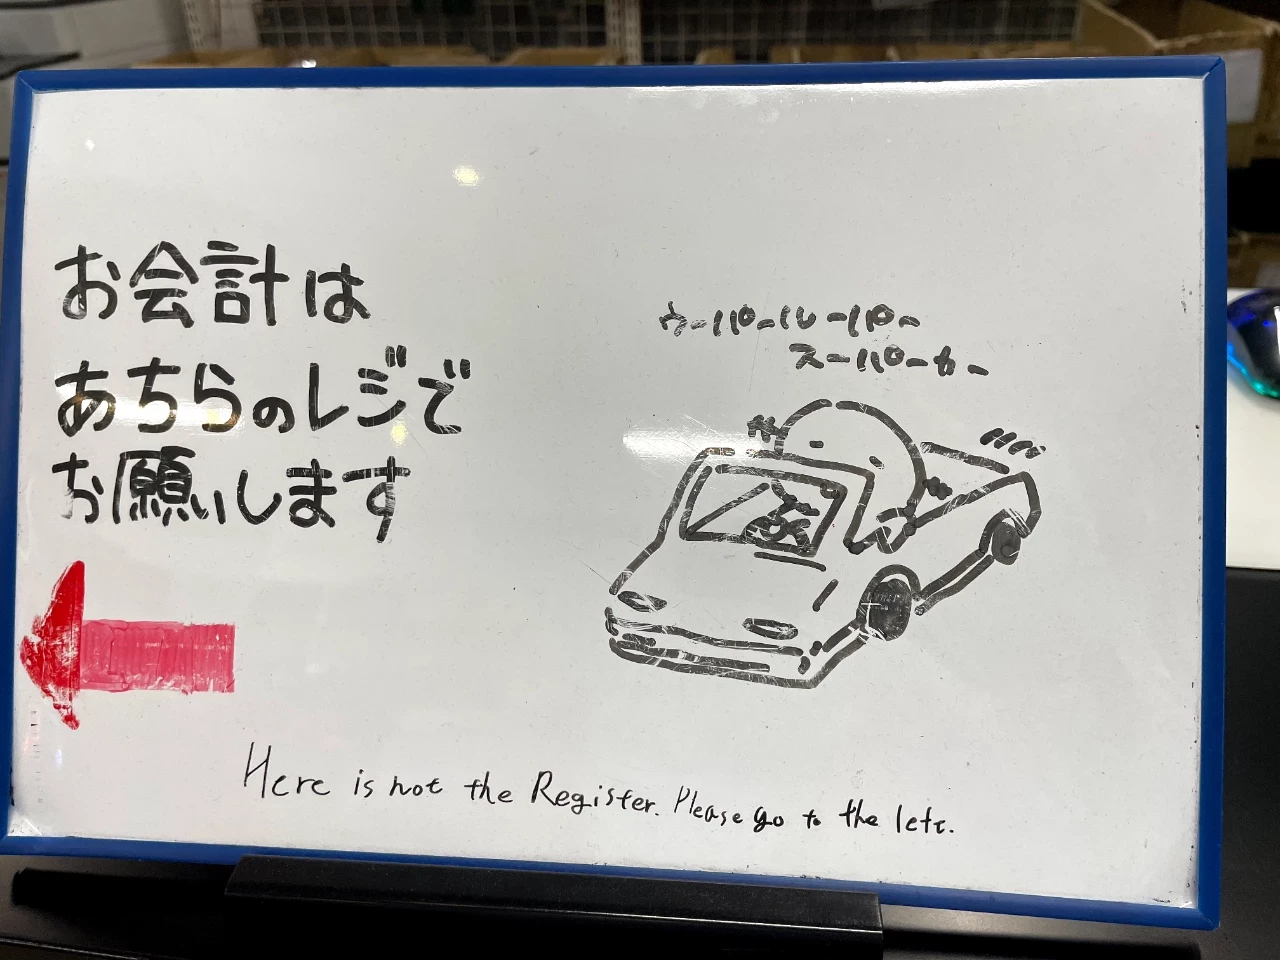 お会計は
あちらのレジで
お願いします
ウーパールーパー
スーパーカー
Here is not the Register. Please go to the left.